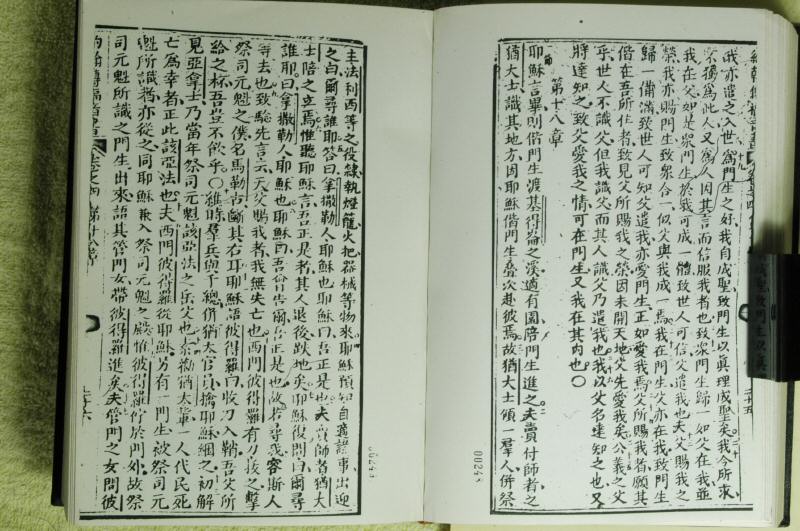 我亦遣之入世爲門生之好我自成聖致門生以眞理成聖矣我今所求
不獨爲此人又爲人因其言而信服我者也致眾門生歸一如父在我並
我在父如是眾門生於我可成一體致世人可信父遣我也夫父賜我之
榮我亦賜門生致眾合一似父與我成一焉我在門生父亦在我致門生
歸一備滿致世人可知父遣我亦愛門生正如愛我焉父所賜我者願其
偕在吾所在者致見父所賜我之榮因未開天地父先愛我矣公義之父
乎世人不識父但我識父而其人識父乃遣我也我以父名達知之也又
時達知之致父愛我之情可在門生又我在其內也○
第十八章
耶穌言畢則偕門生渡基得崙之溪適有園陪門生進之夫賣付師者之
猶大士識其地方因耶穌偕門生叠次赴彼焉故猶大士領一羣人併祭
00248
主法利西等之役隸執燈籠火把器械等物來耶穌預知自遇諸事出迎
之曰爾尋誰耶答曰拿撒勒人耶穌也耶穌曰吾正是也夫賣師者猶大
士陪之立焉惟聽耶穌言吾正是者其人退後跌地矣耶穌復問曰爾尋
誰耶曰拿撒勒人耶穌也耶穌曰吾會告爾吾正是也故若尋我容斯人
等去也致驗先言云天父賜我者我無失亡也西門彼得羅有刀拔之擊
祭司元魁之僕名馬勒古斷其右耳耶穌語彼得羅曰收刀入鞘吾父所
給之杯吾豈不飲乎○維時羣兵與千總併猶太官員擒耶穌綑之初解
見亞拿士乃當年祭司元魁該亞法之岳父也素勸猶太輩一人代民死
亡爲幸者正此該亞法也夫西門彼得羅從耶穌另有一門生被祭司元
魁所識猶亦從之同耶穌兼入祭司元魁之殿惟彼得羅佇於門外故祭
司元魁所識之門生出來語其管門女帶彼得羅進矣夫管門之女問彼
約翰傳福音書 卷之四 第十八章 二十六
00248